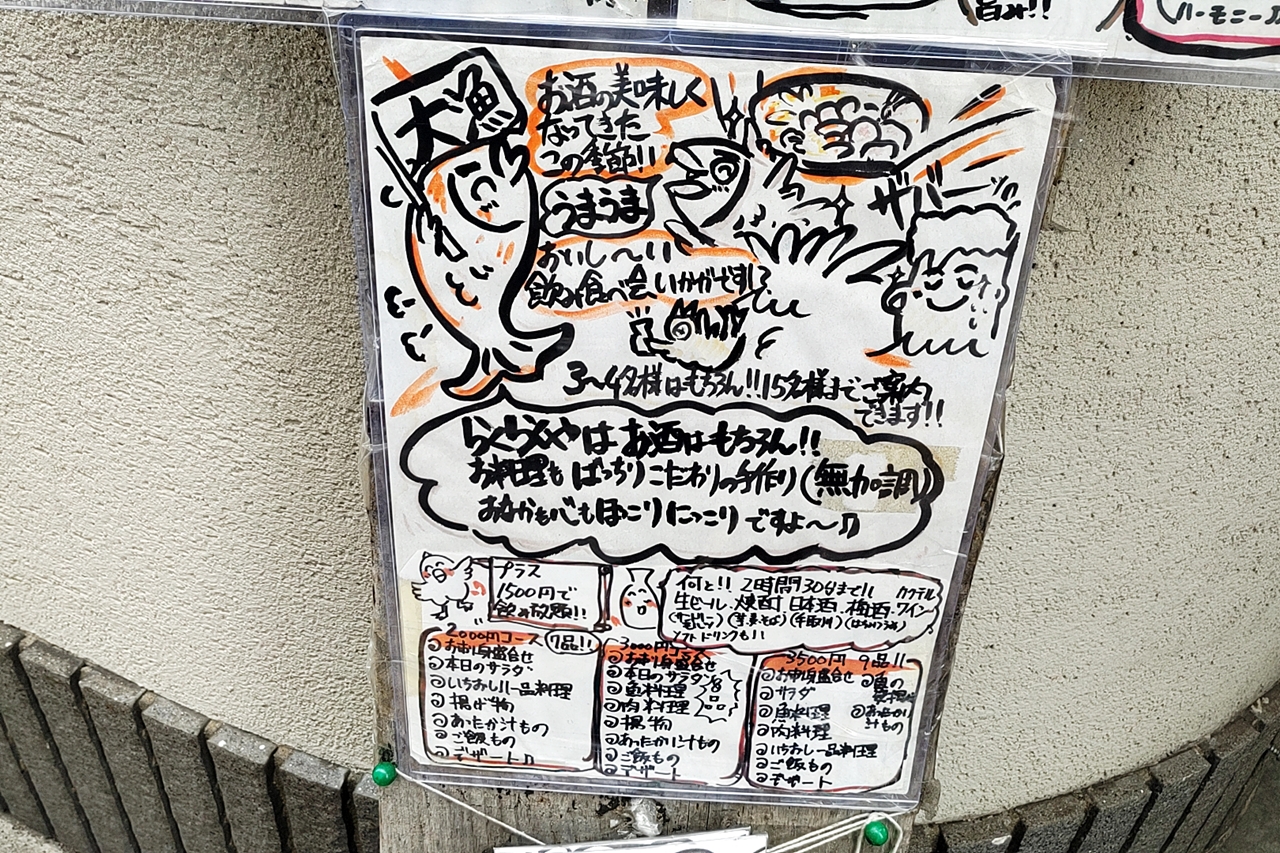 旨み!!
ハーモニー♪
大漁
お酒の美味しく
なってきた
この季節!!
うまうま
おいし〜い
飲み食べ会いかがです!?
ザバー
3〜4名様はもちろん!!15名様までご案内
できます!!
らくらくやはお酒はもちろん!!
お料理もばっちりこだわりの手作り(無加調)
おなかも心もほっこりにっこりですよ〜♫
プラス
1500円で
飲み放題!!
何と!! 2時間30分まで!! カクテル
生ビール・焼酎 日本酒・梅酒・ワイン
ソフトドリンクも!!
2000円コース 7品!!
お刺身盛合せ
本日のサラダ
いちおし!!一品料理
揚げ物
あったか汁もの
ご飯もの
デザート♫
3000円コース
8品
お刺身盛合せ
本日のサラダ
魚料理
肉料理
揚物
あったか汁もの
ご飯もの
デザート
3500円 9品!!
お刺身盛合せ
サラダ
魚料理
肉料理
いちおし一品料理
ご飯もの
デザート
魚の
あったか
汁もの